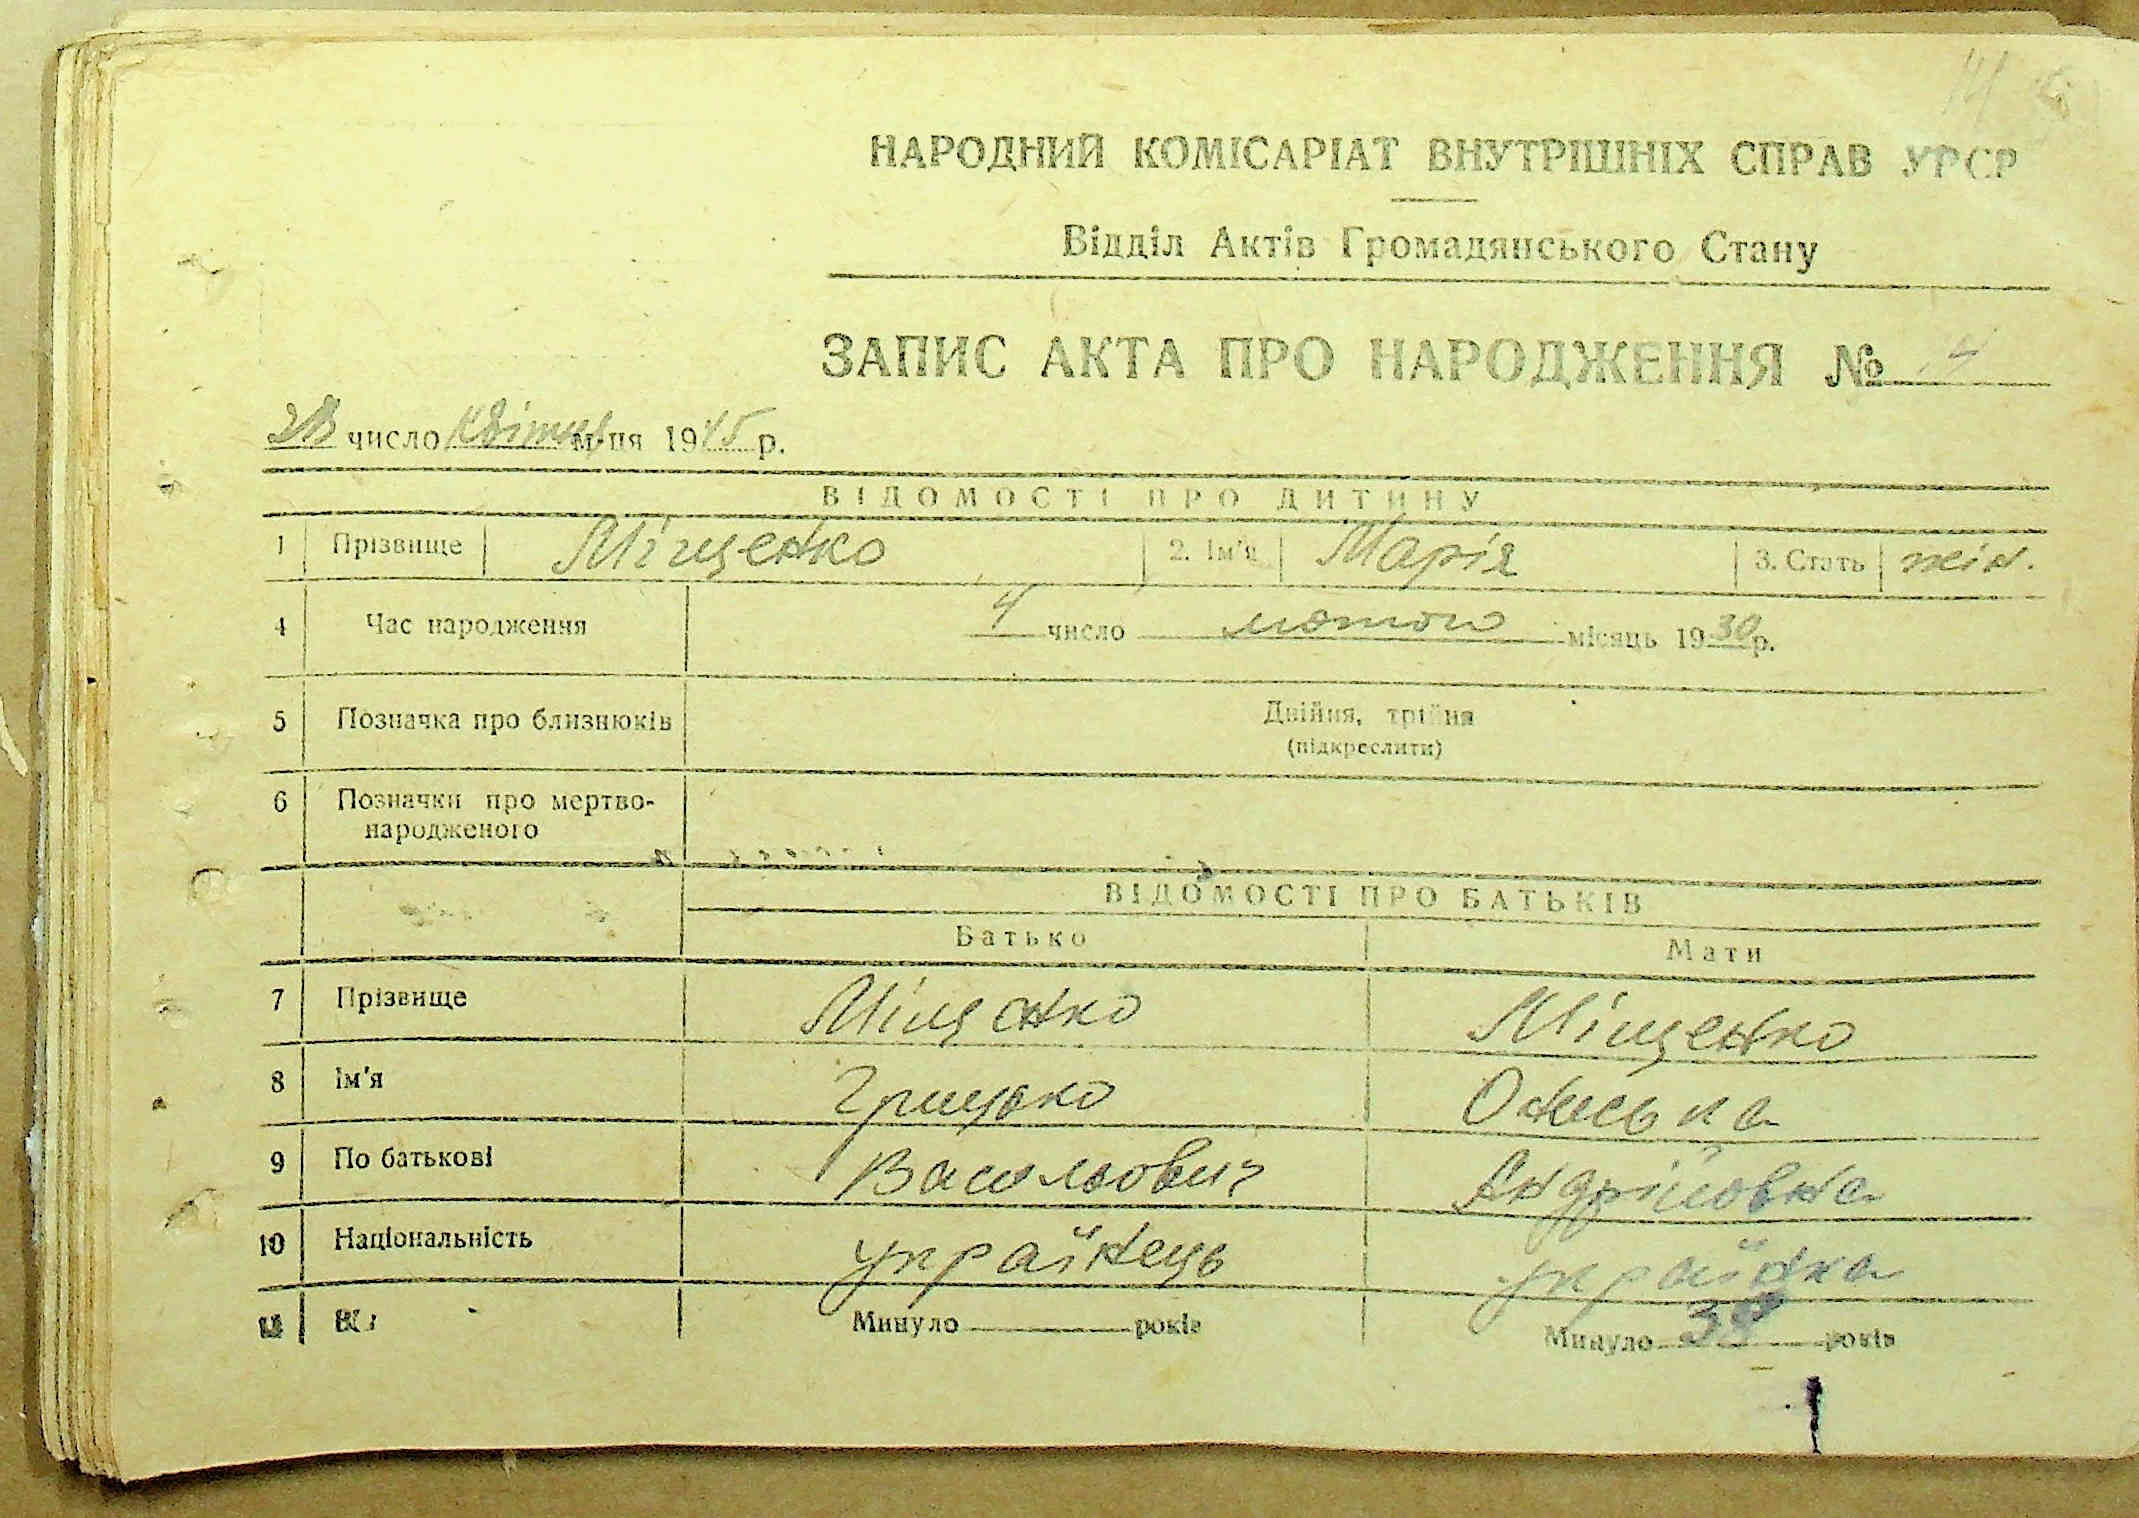 НАРОДНИЙ КОМІСАРІАТ ВНУТРІШНІХ СПРАВ УРСР
Відділ Актів Громадянського Стану
ЗАПИС АКТА ПРО НАРОДЖЕННЯ № 4
28 число квітня м-ця 1945 р.
ВІДОМОСТІ ПРО ДИТИНУ
1 Прізвище Міщенко 2. Ім'я Марія 3. Стать жін.
4 Час народження 4 число лютого місяць 1930 р.
5 Позначка про близнюків Двійня, трійня
(підкреслити)
6 Позначки про мертво-
народженого
ВІДОМОСТІ ПРО БАТЬКІВ
Батько Мати
7 Прізвище Міщенко Міщенко
8 Ім'я Грицько Ониська
9 По батькові Васильович Андріївна
10 Національність українець українка
Минуло років Минуло 38 років